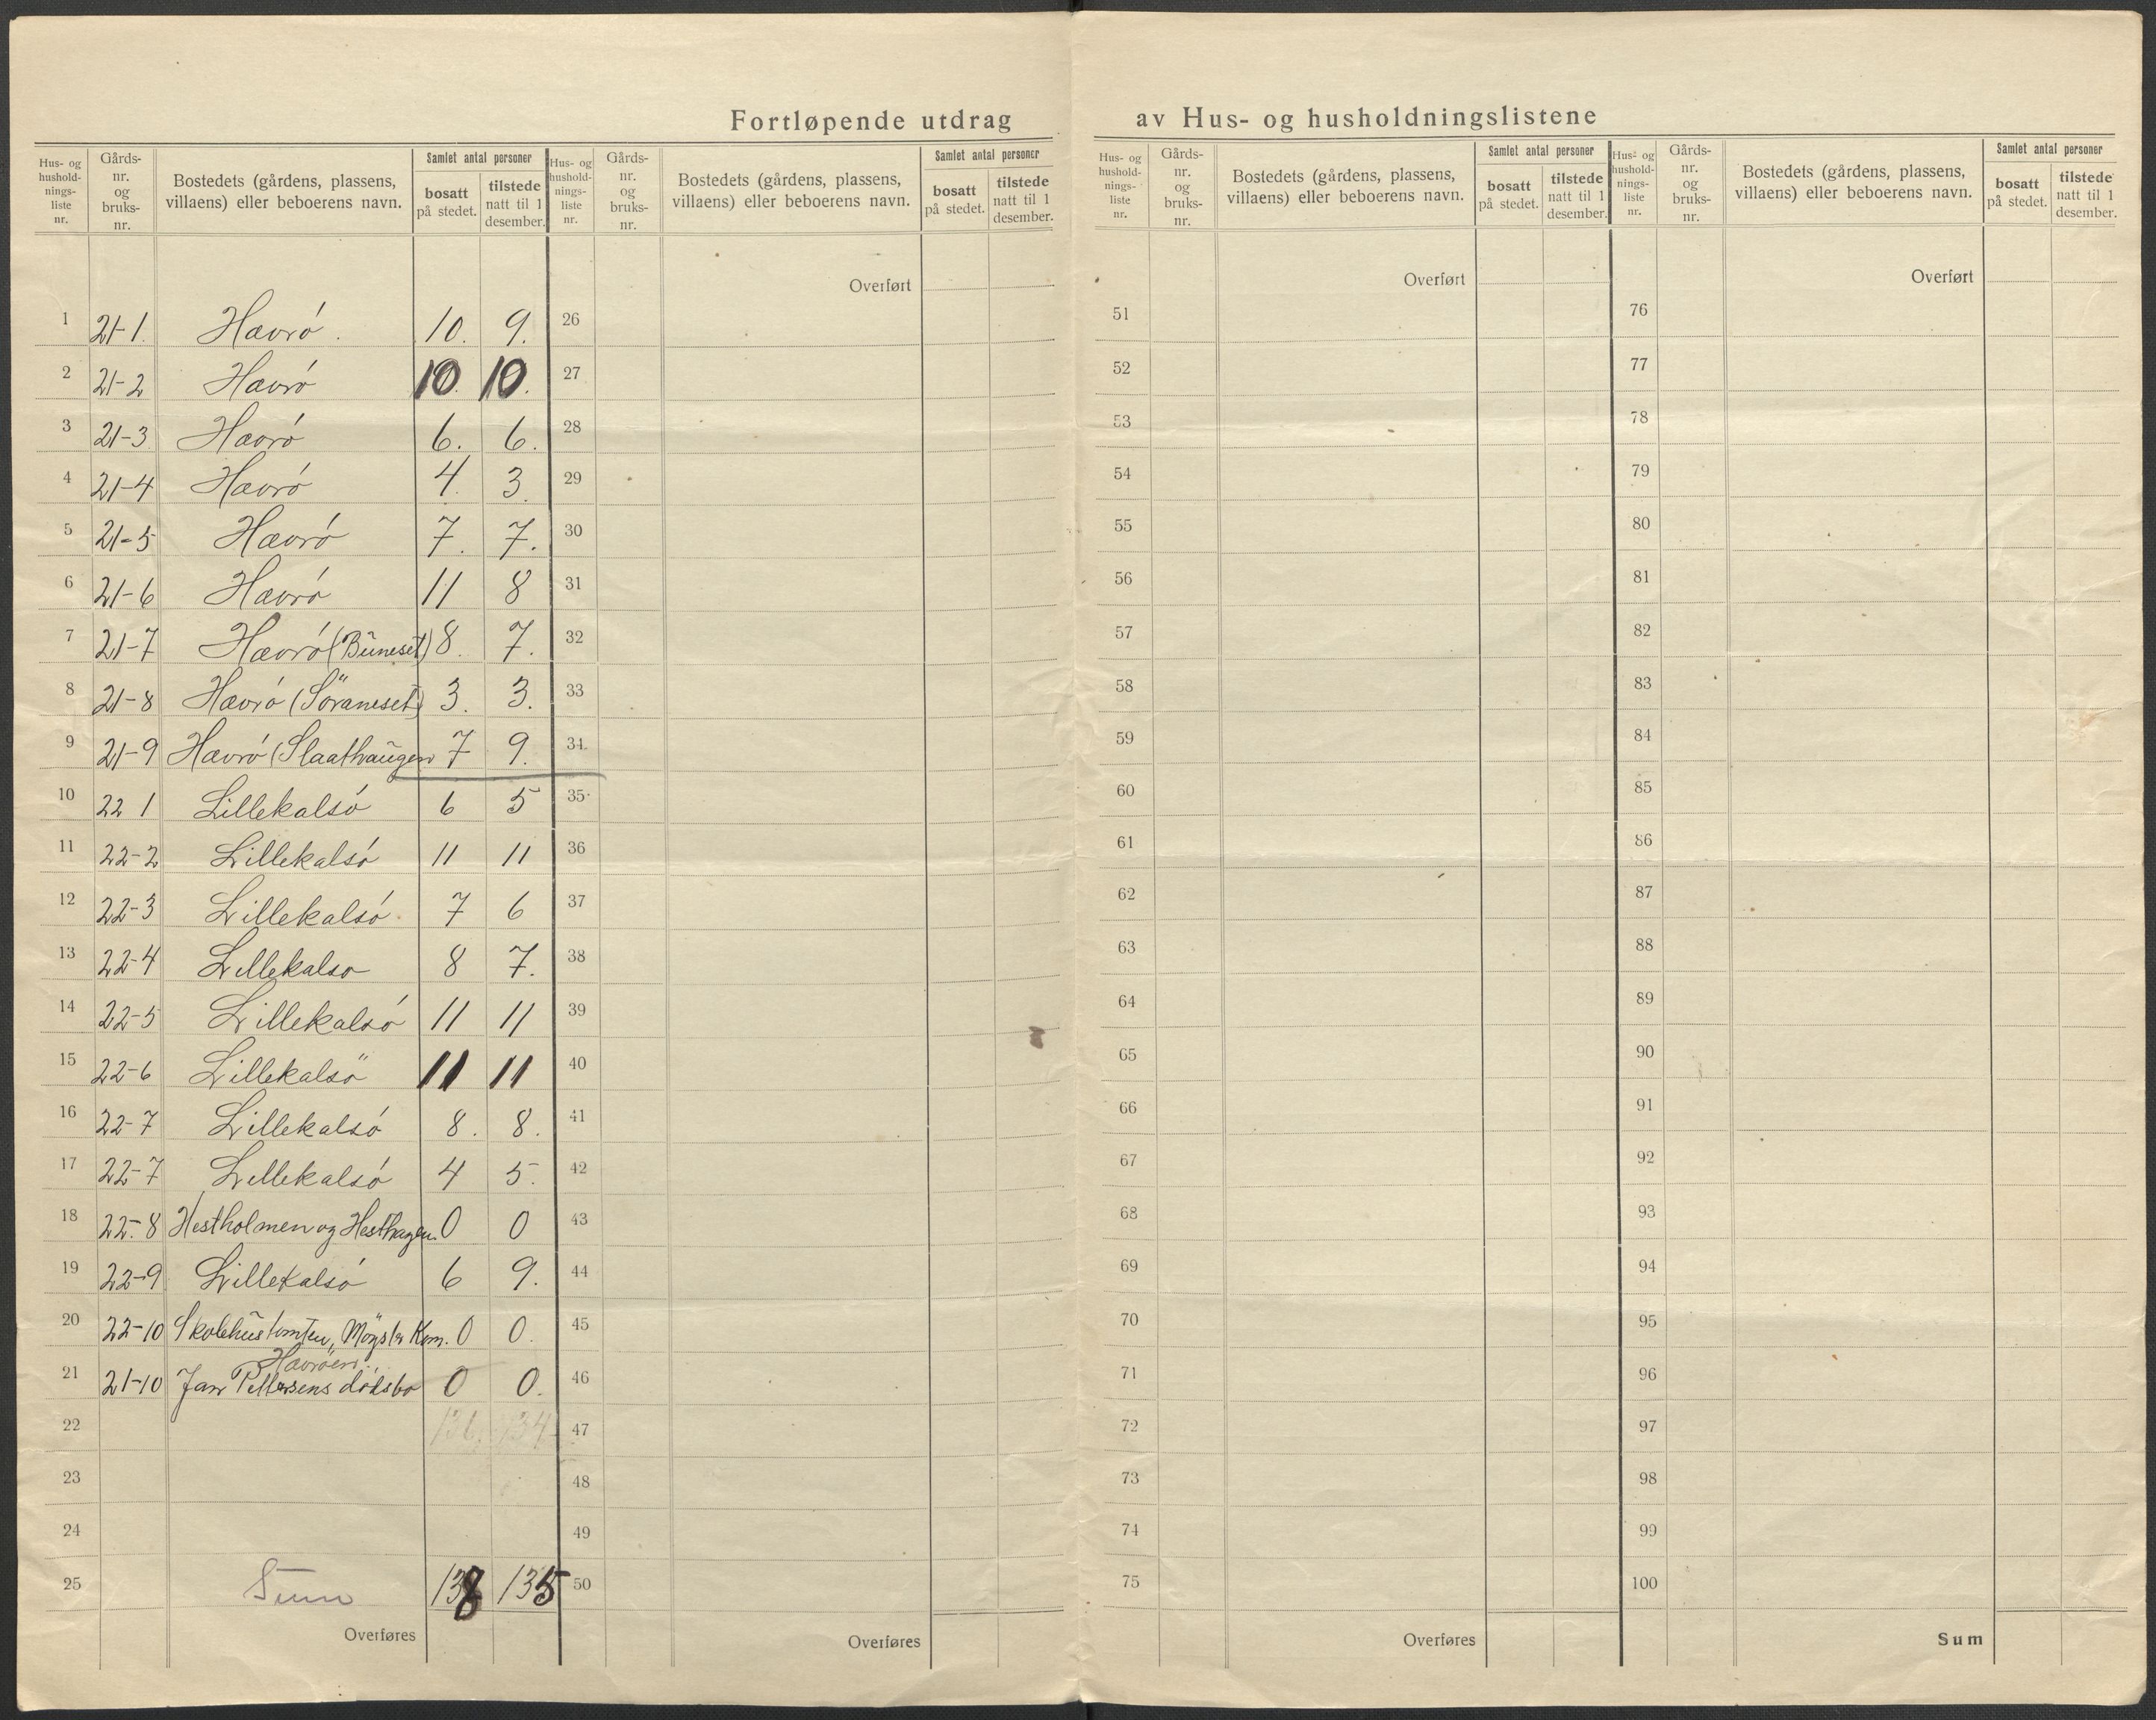 Fortløpende utdrag av Hus- og husholdningslistene
Hus- og hushold-nings-liste nr. Gårds-nr. og bruks-nr. Bostedets (gårdens, plassens, villaens) eller beboerens navn. Samlet antal personer bosatt på stedet. tilstede natt til 1 desember.
Hus- og hushold-nings-liste nr. Gårds-nr. og bruks-nr. Bostedets (gårdens, plassens, villaens) eller beboerens navn. Samlet antal personer bosatt på stedet. tilstede natt til 1 desember.
Hus- og hushold-nings-liste nr. Gårds-nr. og bruks-nr. Bostedets (gårdens, plassens, villaens) eller beboerens navn. Samlet antal personer bosatt på stedet. tilstede natt til 1 desember.
Hus- og hushold-nings-liste nr. Gårds-nr. og bruks-nr. Bostedets (gårdens, plassens, villaens) eller beboerens navn. Samlet antal personer bosatt på stedet. tilstede natt til 1 desember.
Overført Overført Overført
1 21-1. Hævró. 10. 9. 26 51 76
2 21-2 Hævró 10. 10. 27 52 77
3 21-3 Hævró 6. 6. 28 53 78
4 21-4 Hævró 4. 3. 29 54 79
5 21-5 Hævró 7. 7. 30 55 80
6 21-6 Hævró 11 8 31 56 81
7 21-7 Hævró (Buneset) 8. 7. 32 57 82
8 21-8 Hævró (Söraneset) 3. 3. 33 58 83
9 21-9 Hævró (Slaathaugen 7 9. 34 59 84
10 22 1 Lillekalsó 6 5 35 60 85
11 22-2 Lillekalsó 11 11 36 61 86
12 22-3 Lillekalsó. 7 6 37 62 87
13 22-4 Lillekalso 8 7. 38 63 88
14 22-5 Lillekalsó 11 11 39 64 89
15 22-6 Lillekalsö 11 11 40 65 90
16 22-7 Lillekalsó 8. 8. 41 66 91
17 22-7 Lillekalsó 4 5. 42 67 92
18 22-8 Hestholmen og Hesthagen 0 0 43 68 93
19 22-9 Lillekalsó 6 9. 44 69 94
20 22-10 Skolehustomten, Mögster Kom. 0 0. 45 70 95
Hævröen
21 21-10 Jan Pettersens dödsbo 0 0. 46 71 96
22 136 134 47 72 97
23 48 73 98
24 49 74 99
25 Sum 138 135 50 75 100
Overføres Overføres Overføres Sum